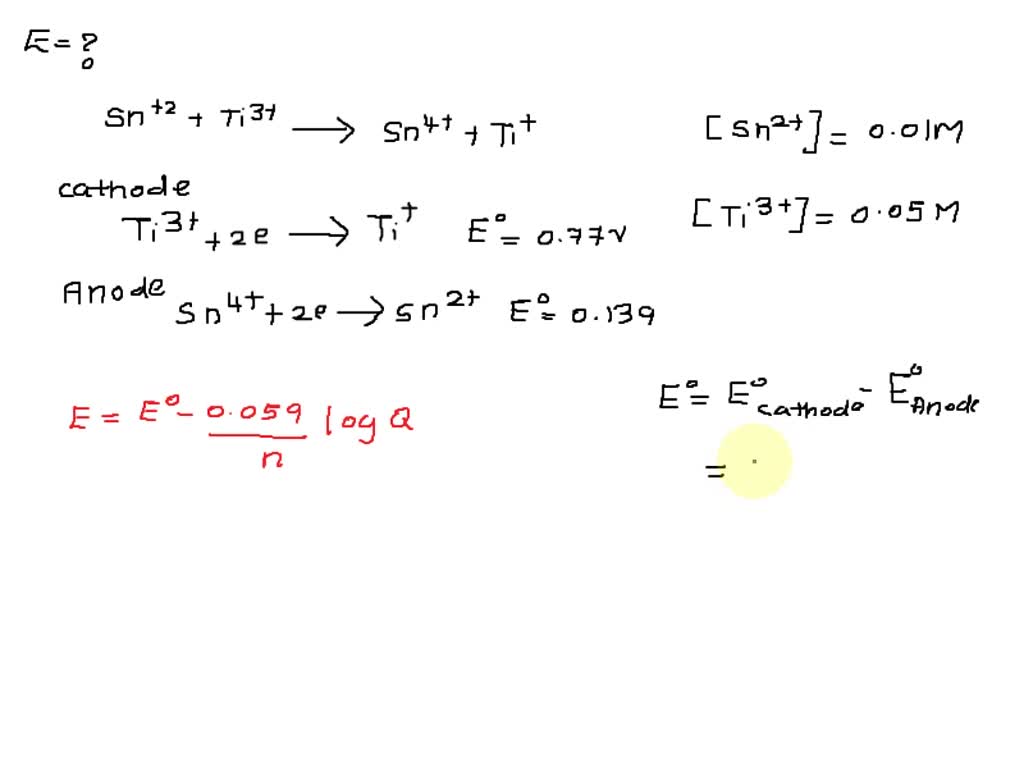 E = ?
Sn⁺² + Ti³⁺ ⟶ Sn⁴⁺ + Ti⁺
[Sn²⁺] = 0.01M
cathode
Ti³⁺ + 2e ⟶ Ti⁺ E° = 0.77V
[Ti³⁺] = 0.05M
Anode
Sn⁴⁺ + 2e ⟶ Sn²⁺ E° = 0.139
E° = E°cathode - E°Anode
E = E° - 0.059/n log Q
=